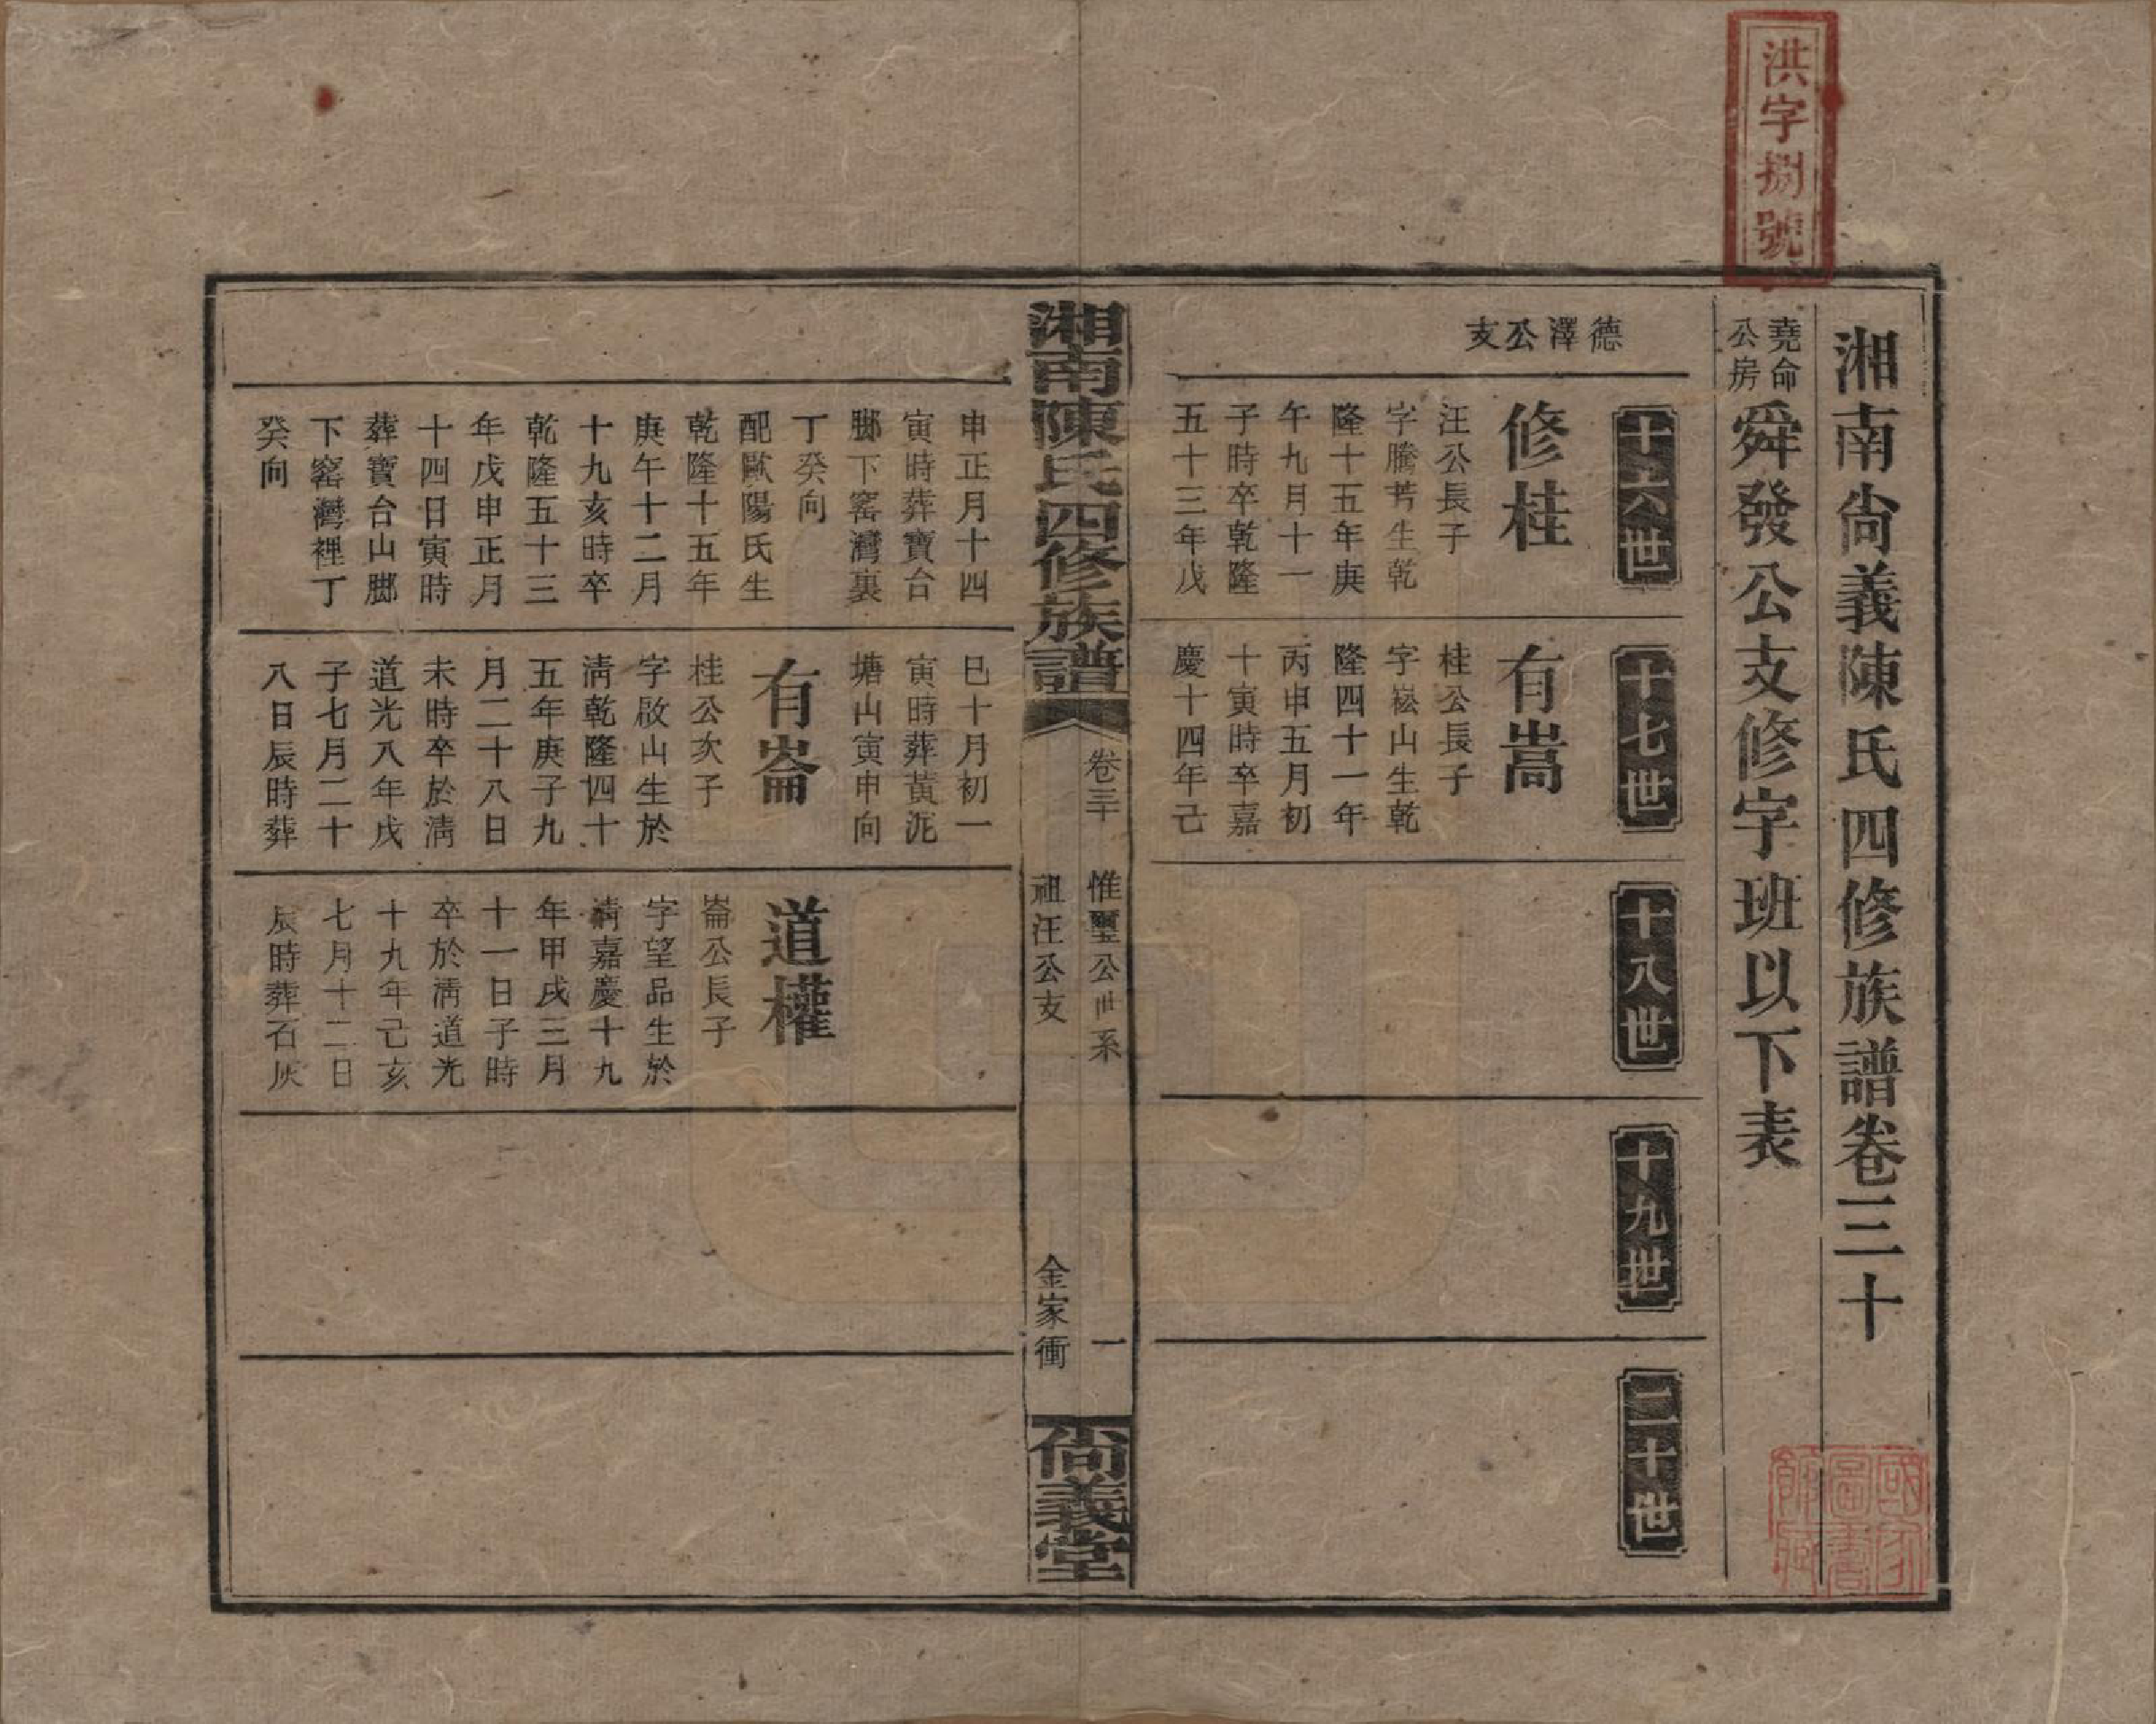 洪字捌號
湘南尙義陳氏四修族譜卷三十
堯命
公房
舜發公支修字班以下表
德澤公支
十六世
修桂
汪公長子
字騰芳生乾
隆十五年庚
午九月十一
子時卒乾隆
五十三年戊
十七世
有嵩
桂公長子
字崧山生乾
隆四十一年
丙申五月初
十寅時卒嘉
慶十四年己
十八世
十九世
二十世
湘南陳氏四修族譜
卷三十
惟璽公世系
祖汪公支
一
金家衝
尙義堂
申正月十四
寅時葬寶台
腳下窰灣裏
丁癸向
配歐陽氏生
乾隆十五年
庚午十二月
十九亥時卒
乾隆五十三
年戊申正月
十四日寅時
葬寶台山腳
下窰灣裡丁
癸向
巳十月初一
寅時葬黃泥
塘山寅申向
有崙
桂公次子
字啟山生於
淸乾隆四十
五年庚子九
月二十八日
未時卒於淸
道光八年戊
子七月二十
八日辰時葬
道權
崙公長子
字望品生於
淸嘉慶十九
年甲戌三月
十一日子時
卒於淸道光
十九年己亥
七月十二日
辰時葬石灰
國家
圖書
館藏